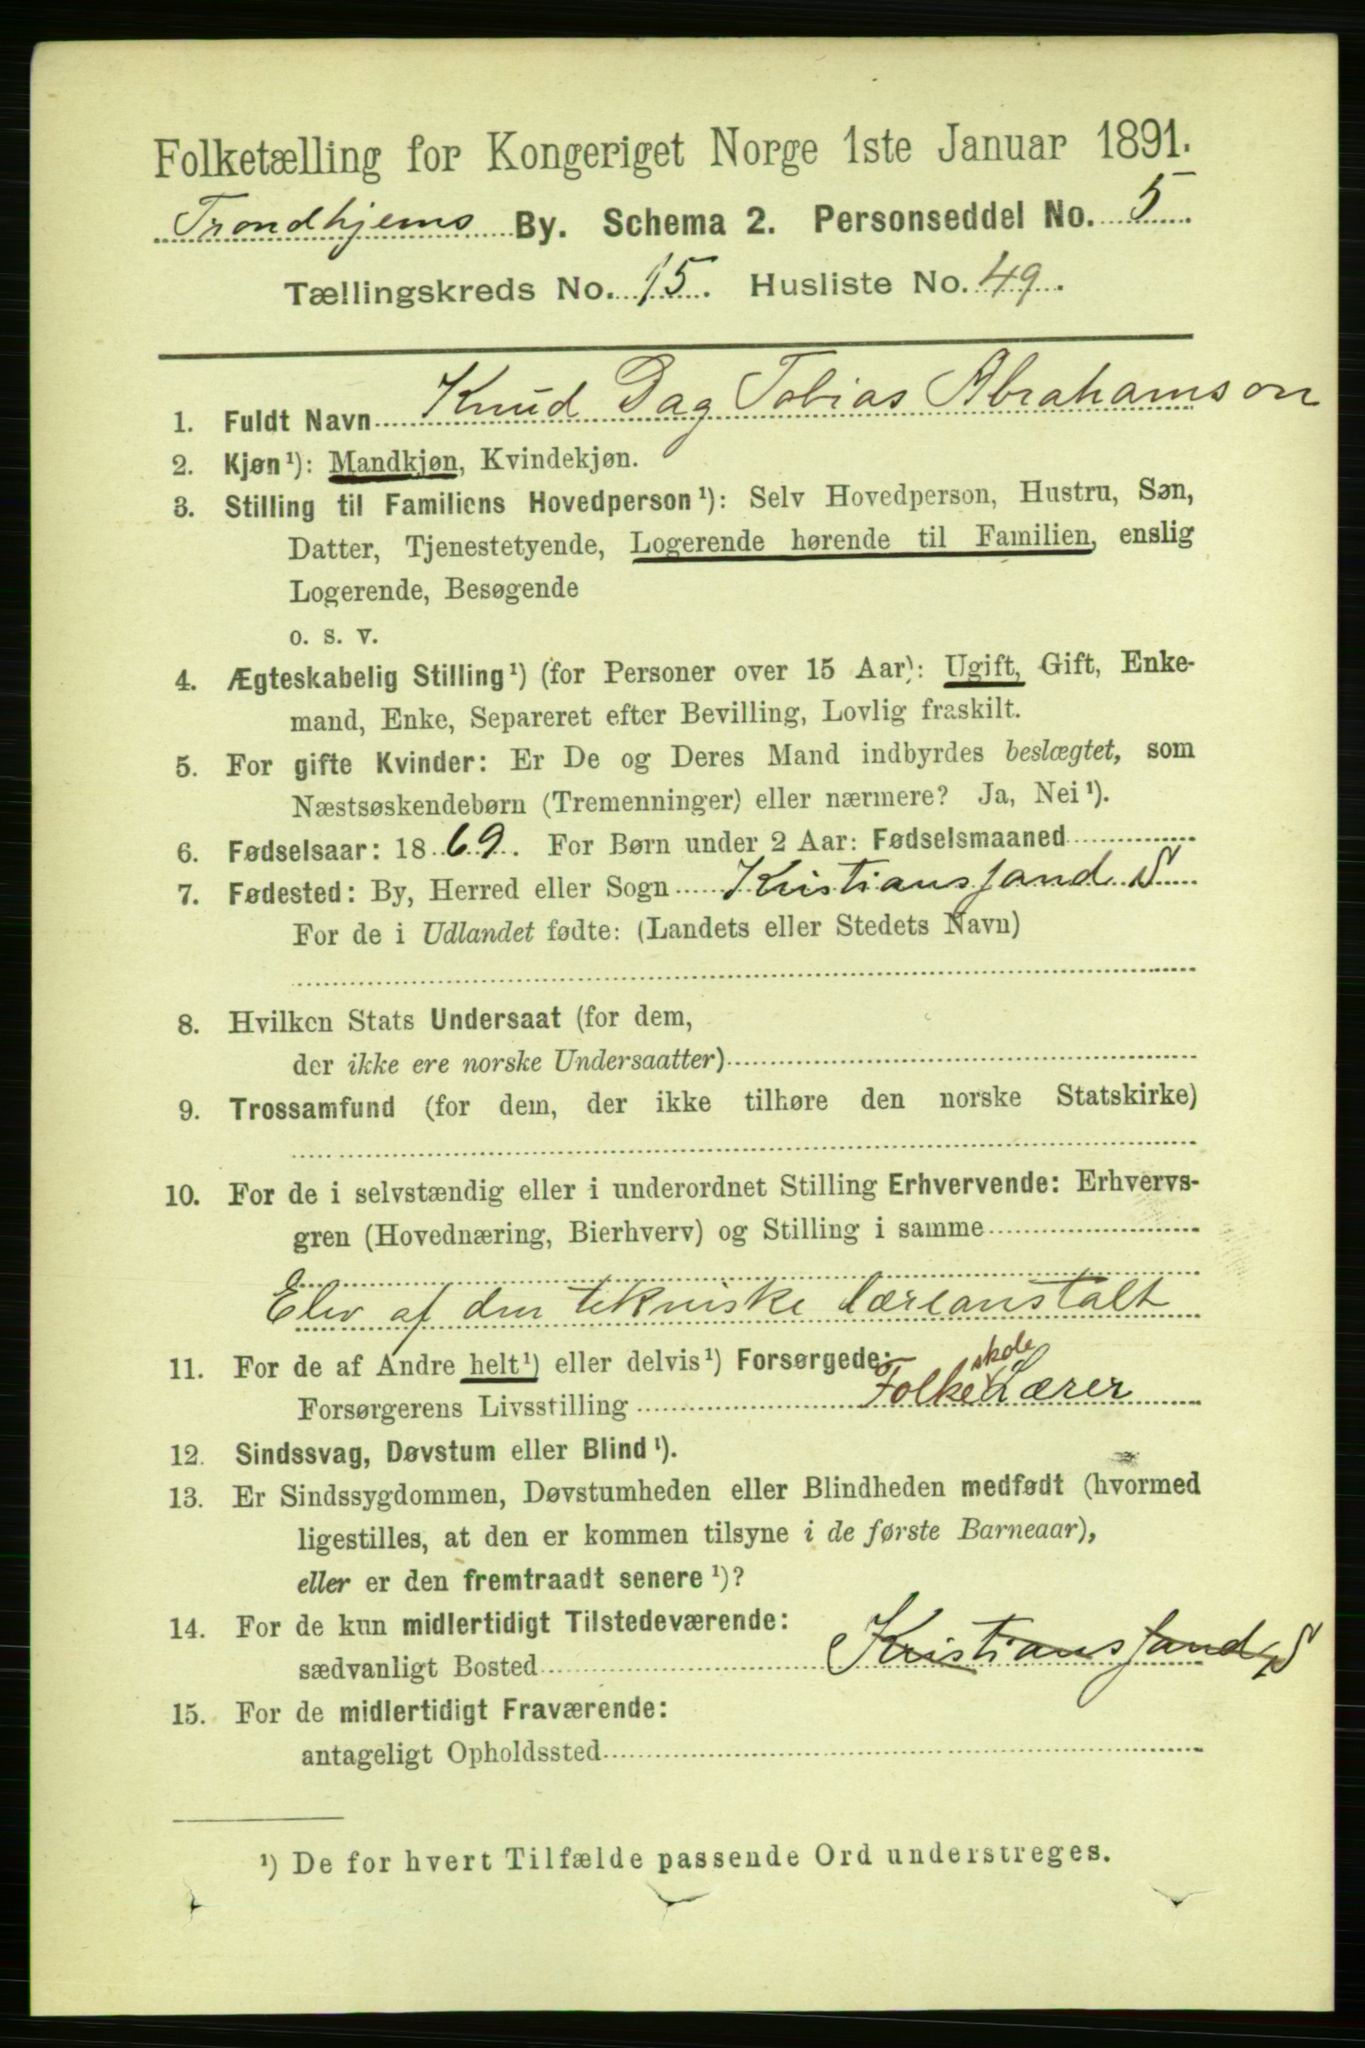 Folketælling for Kongeriget Norge 1ste Januar 1891.
Trondhjems By. Schema 2. Personseddel No. 5
Tællingskreds No. 15. Husliste No. 49.
1. Fuldt Navn Knud Dag Tobias Abrahamson
2. Kjøn¹): Mandkjøn, Kvindekjøn.
3. Stilling til Familiens Hovedperson¹): Selv Hovedperson, Hustru, Søn,
Datter, Tjenestetyende, Logerende hørende til Familien, enslig
Logerende, Besøgende
o. s. v.
4. Ægteskabelig Stilling¹) (for Personer over 15 Aar): Ugift, Gift, Enke-
mand, Enke, Separeret efter Bevilling, Lovlig fraskilt.
5. For gifte Kvinder: Er De og Deres Mand indbyrdes beslægtet, som
Næstsøskendebørn (Tremenninger) eller nærmere? Ja, Nei¹).
6. Fødselsaar: 1869. For Børn under 2 Aar: Fødselsmaaned
7. Fødested: By, Herred eller Sogn Kristianssand S
For de i Udlandet fødte: (Landets eller Stedets Navn)
8. Hvilken Stats Undersaat (for dem,
der ikke ere norske Undersaatter)
9. Trossamfund (for dem, der ikke tilhøre den norske Statskirke)
10. For de i selvstændig eller i underordnet Stilling Erhvervende: Erhvervs-
gren (Hovednæring, Bierhverv) og Stilling i samme
Elev af den tekniske Læreanstalt
11. For de af Andre helt¹) eller delvis¹) Forsørgede:
Forsørgerens Livsstilling Folkeskole Lærer
12. Sindssvag, Døvstum eller Blind¹).
13. Er Sindssygdommen, Døvstumheden eller Blindheden medfødt (hvormed
ligestilles, at den er kommen tilsyne i de første Barneaar),
eller er den fremtraadt senere¹)?
14. For de kun midlertidigt Tilstedeværende:
sædvanligt Bosted Kristianssand S
15. For de midlertidigt Fraværende:
antageligt Opholdssted
¹) De for hvert Tilfælde passende Ord understreges.